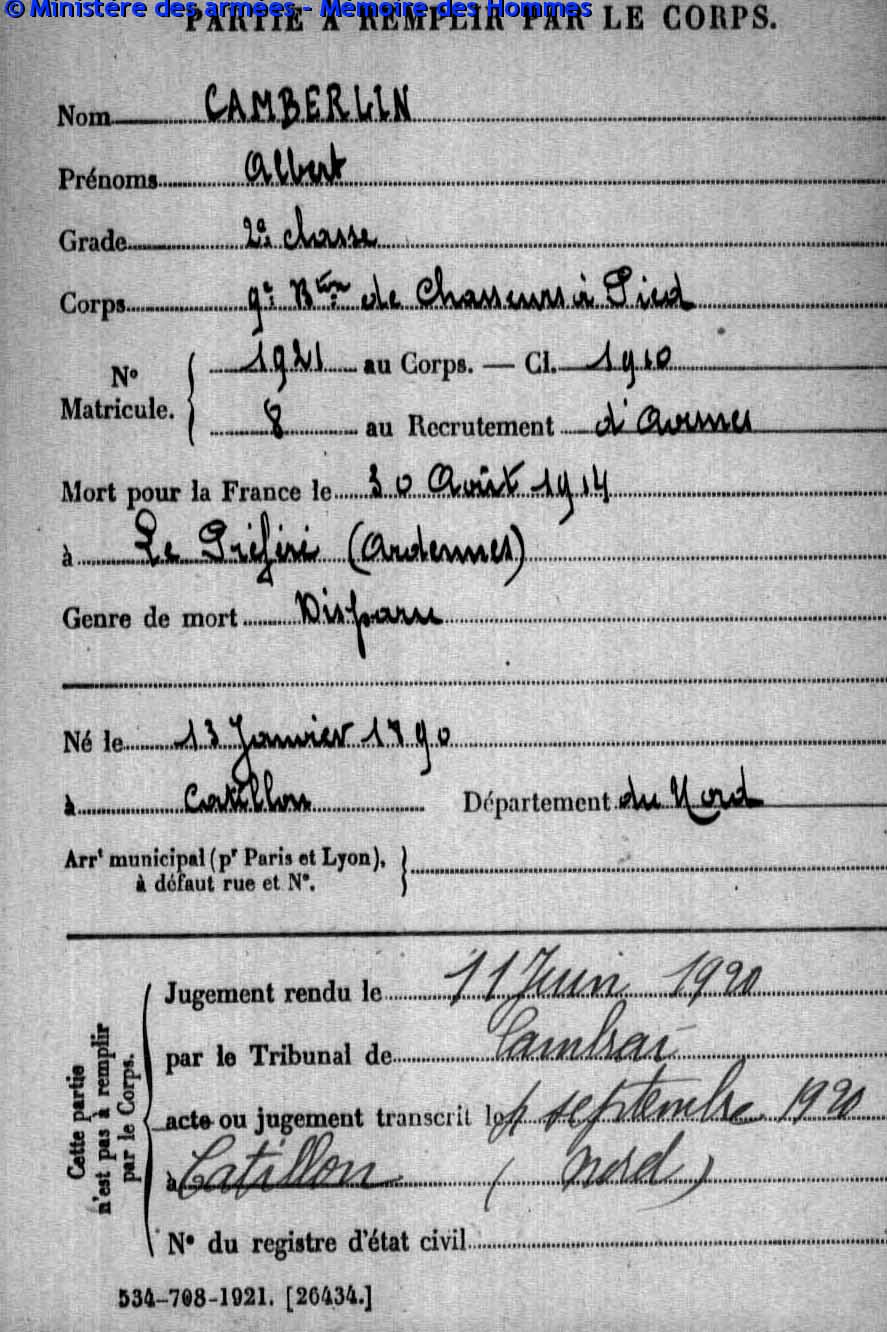 © Ministère des armées - Mémoire des Hommes
PARTIE À REMPLIR PAR LE CORPS.
Nom CAMBERLIN
Prénoms Albert
Grade 2e classe
Corps 9e Bton de Chasseurs à Pied
No Matricule. 1921 au Corps. — Cl. 1910
8 au Recrutement d'Avesnes
Mort pour la France le 30 Août 1914
à Le Préféré (Ardennes)
Genre de mort Disparu
Né le 13 Janvier 1890
à Catillon Département du Nord
Arrt municipal (pr Paris et Lyon),
à défaut rue et No.
Cette partie
n'est pas à remplir
par le Corps.
Jugement rendu le 11 Juin 1920
par le Tribunal de Cambrai
acte ou jugement transcrit le septembre 1920
à Catillon (Nord)
No du registre d'état civil
534-708-1921. [26434.]